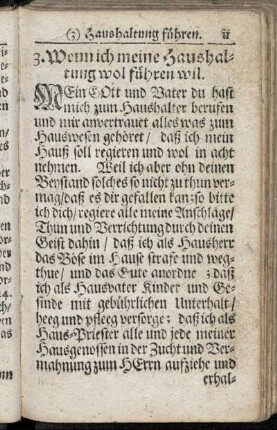 (3) Haushaltung führen. 11
3. Wenn ich meine Haushal-
tung wol führen wil.
MEin GOtt und Vater du hast
mich zum Haushalter berufen
und mir anvertrauet alles was zum
Hauswesen gehöret/ daß ich mein
Hauß soll regieren und wol in acht
nehmen. Weil ich aber ohn deinen
Beystand solches so nicht zu thun ver-
mag/daß es dir gefallen kan: so bitte
ich dich/regiere alle meine Anschläge/
Thun und Verrichtung durch deinen
Geist dahin/ daß ich als Hausherr
das Böse im Hause strafe und weg-
thue/ und das Gute anordne; daß
ich als Hausvater Kinder und Ge-
sinde mit gebührlichen Unterhalt/
heeg und pfleeg versorge; daß ich als
Haus-Priester alle und jede meiner
Hausgenossen in der Zucht und Ver-
mahnung zum HErrn aufziehe und
erhal-